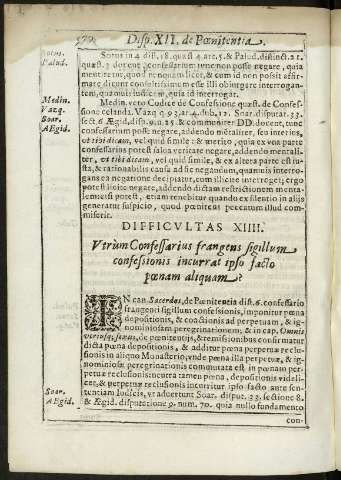 570. Disp. XII. de Pœnitentia.
Sotus in 4. dist. 18. quæst. 4. art. 5. & Palud. distinct. 21.
quæst. 3. docent confessarium tunc non posse negare, quia
mentiretur, quod nunquam licet, & cum id non possit affir-
mare dicunt consultissimum esse illi obiurgare interrogan-
tem, quamuis iudicem, quia id interrogat.
Sotus.
Palud.
Medin. vero Codice de Confessione quæst. de Confes-
sione celanda. Vazq. q. 93. art. 4. dub. 17. Soar. disputat. 33.
sect. 6. Ægid. disp. 9. n. 25. & communiter DD. docent, tunc
confessarium posse negare, addendo mentaliter, seu interius,
ut tibi dicam, vel quid simile: & merito, quia ex vna parte
confessarius potest salua veritate negare, addendo mentali-
ter, vt tibi dicam, vel quid simile, & ex altera parte est iu-
sta, & rationabilis causa ad sic negandum, quamuis interro-
gans ea negatione decipiatur, cum illicite interroget; ergo
potest licite negare, addendo dictam restrictionem menta-
lem: vt si potest, etiam tenebitur quando ex silentio in alijs
generatur suspicio, quod pœnitens peccatum illud com-
miserit.
Medin.
Vazq.
Soar.
AEgid.
DIFFICVLTAS XIIII.
Vtrùm Confessarius frangens sigillum
confessionis incurrat ipso facto
pœnam aliquam?
IN cap. Sacerdos, de Pœnitentia dist. 6. confessario
frangenti sigillum confessionis, imponitur pœna
depositionis, & coactionis ad perpetuam, & ig-
nominiosam peregrinationem, & in cap. Omnis
vtriusque sexus, de pœnitentijs, & remissionibus confirmatur
dicta pœna depositionis, & additur pœna perpetuæ reclu-
sionis in aliquo Monasterio, vnde pœna illa perpetuæ, & ig-
nominiosæ peregrinationis commutata est in pœnam per-
petuæ reclusionis: neutra tamen pœna, depositionis videli-
cet, & perpetuæ reclusionis incurritur ipso facto ante sen-
tentiam Iudicis, vt aduertunt Soar. disput. 33. sectione 8.
& Ægid. disputatione 9. num. 70. quia nullo fundamento
Soar.
AEgid.
con-